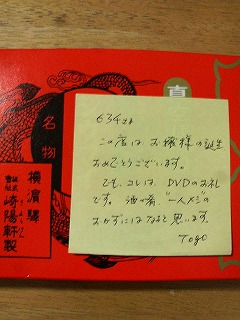 真
名物
横濱驛
株式
會社
崎陽軒製
634さま
この度はお嬢様の誕生
おめでとうございます。
でも、コレは、DVDのお礼
です。酒の肴、一人メシの
おかずにはなると思います。
Togo